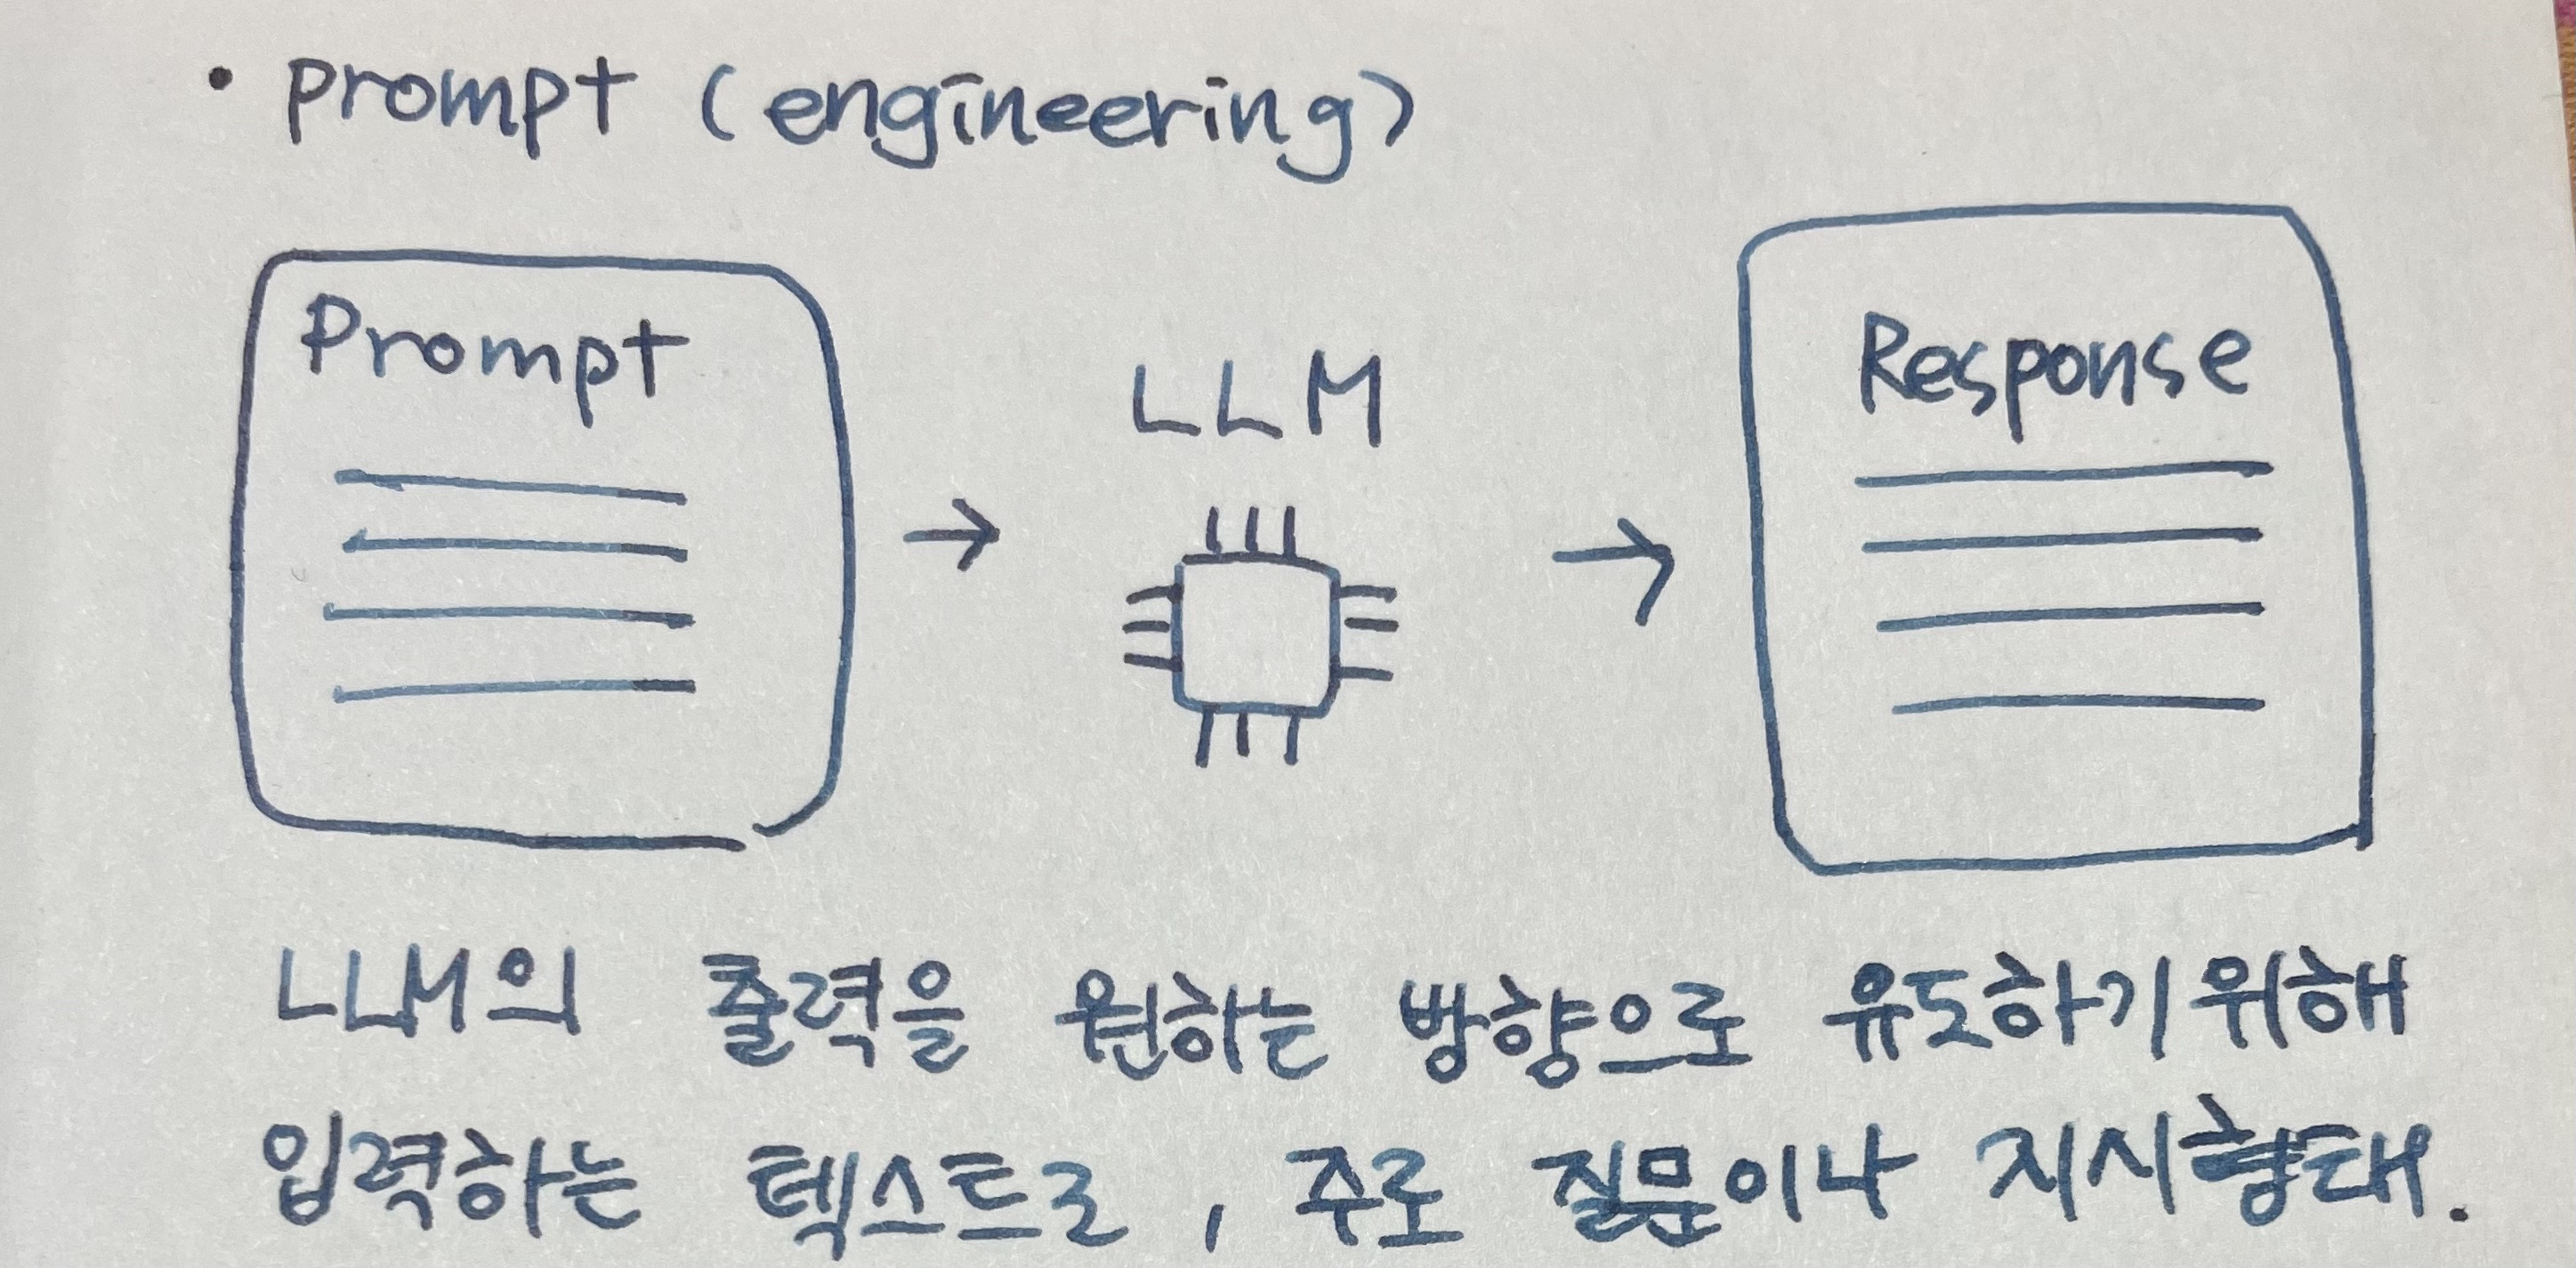 • prompt (engineering)
Prompt
LLM
Response
LLM의 출력을 원하는 방향으로 유도하기 위해
입력하는 텍스트로, 주로 질문이나 지시형태.